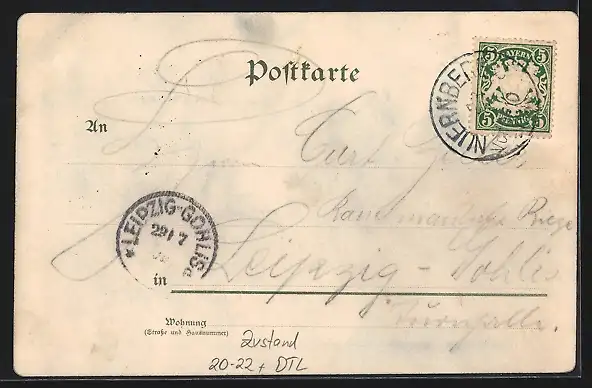 Postkarte
5 BAYERN 5
5 PFENNIG 5
NUERNBERG
An
Herrn Curt
Kaufmannsch. Riege
LEIPZIG-GOHLIS
22/7
in Leipzig-Gohlis
Turnhalle.
Wohnung
(Straße und Hausnummer)
Zustand
20-22 + DTL